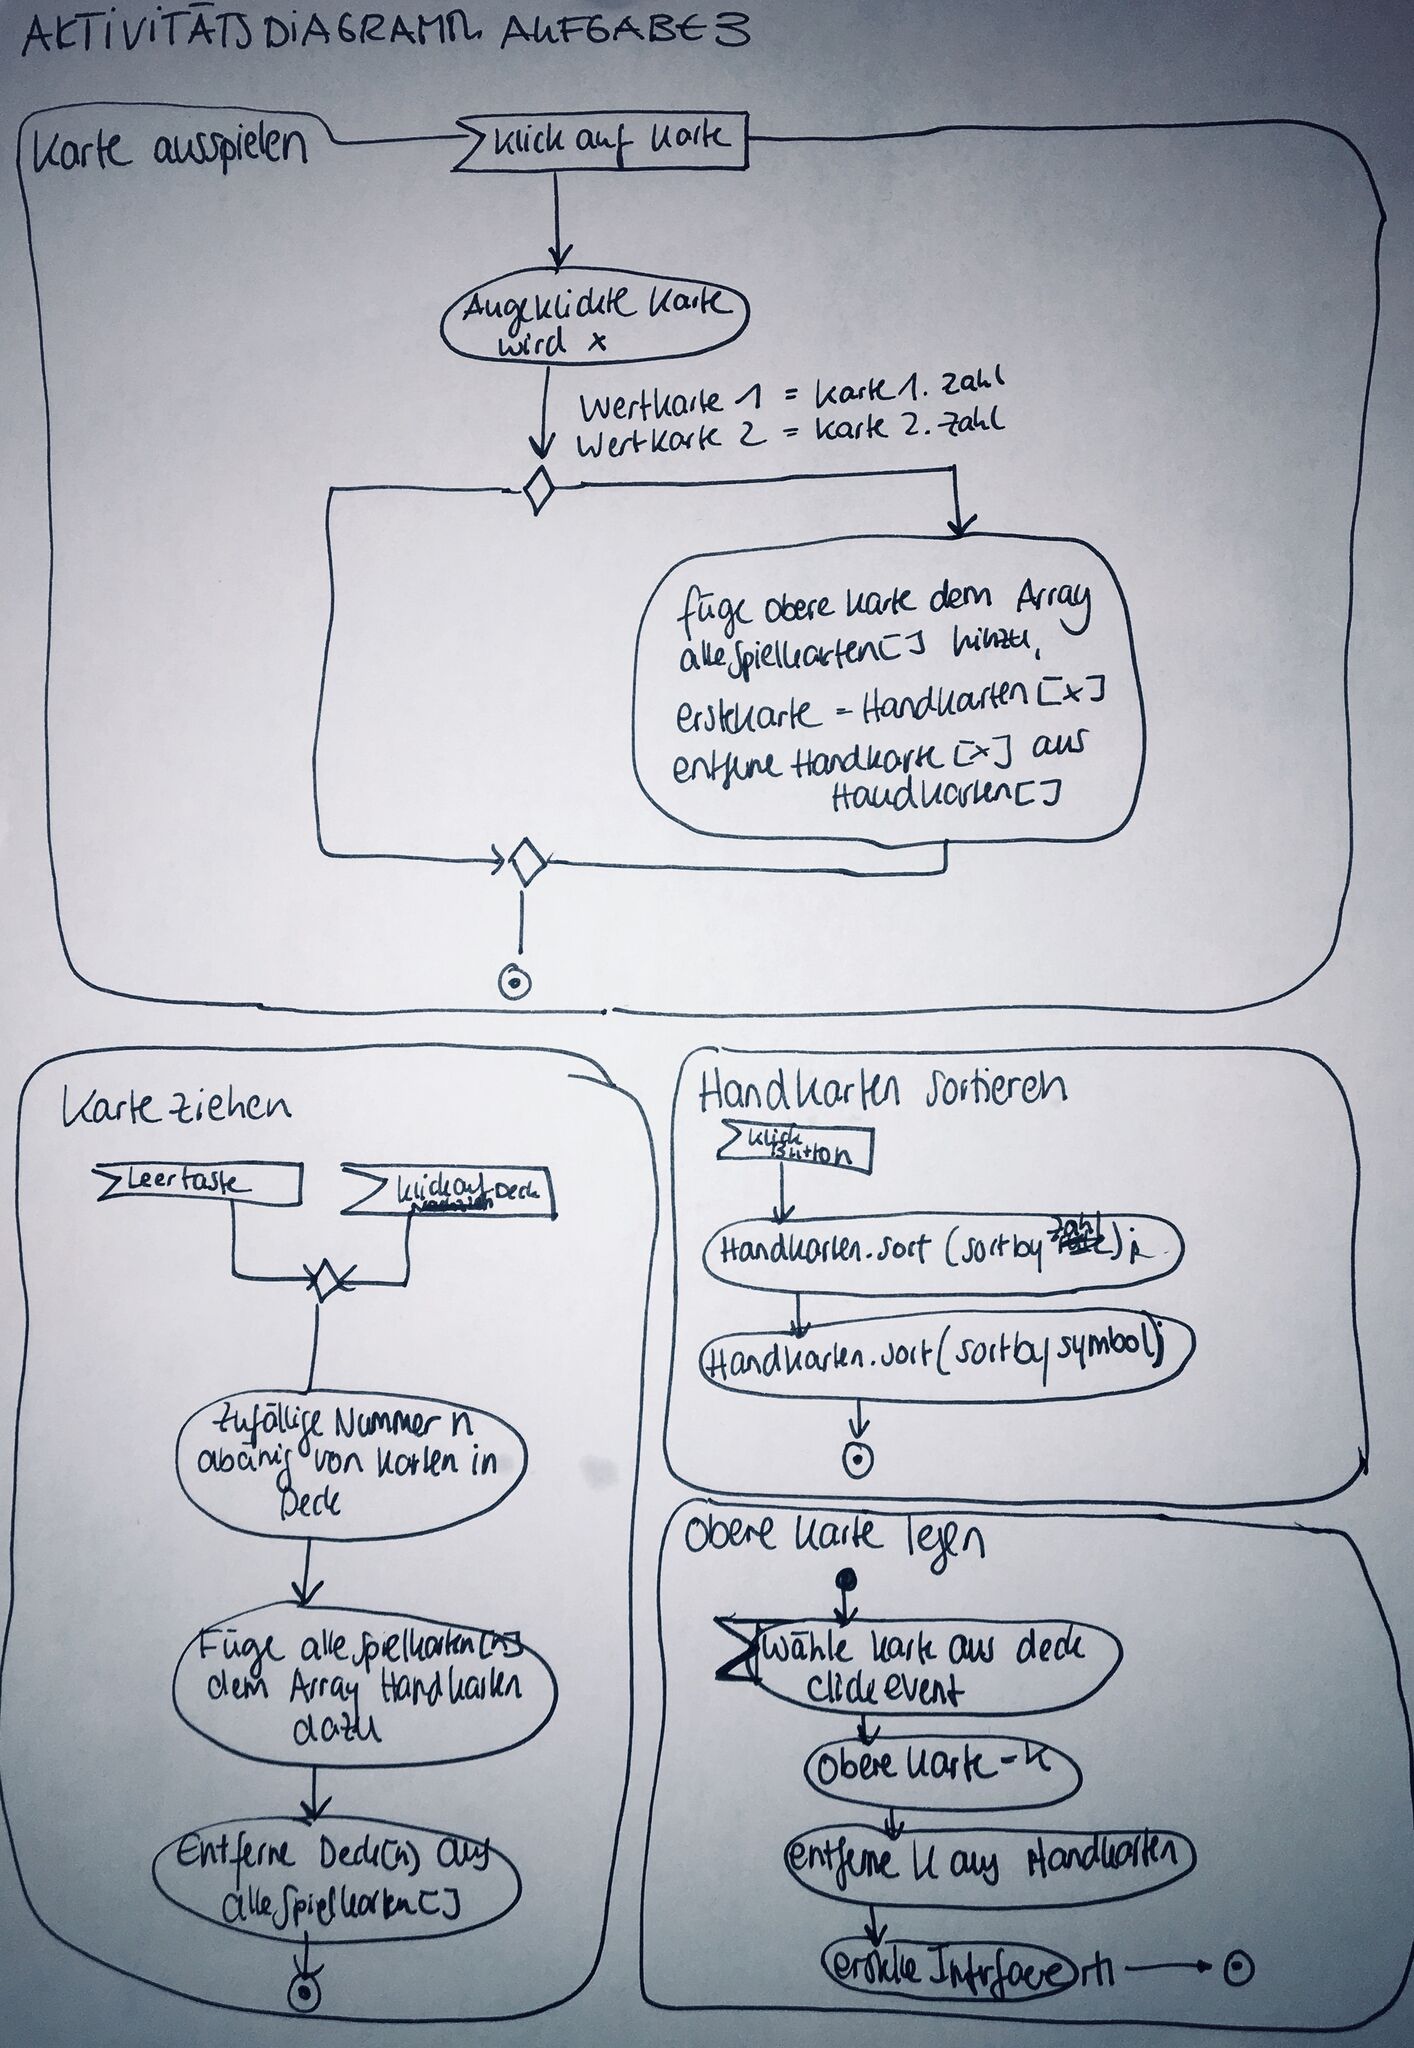 AKTIVITÄTSDIAGRAMM AUFGABE 3
Karte ausspielen
Klick auf Karte
Angeklickte Karte
wird x
Wertkarte 1 = Karte 1. Zahl
Wertkarte 2 = Karte 2. Zahl
füge obere Karte dem Array
alleSpielkarten[] hinzu,
erstekarte = Handkarten [x]
entferne Handkarte [x] aus
Handkarten[]
Karte ziehen
Leertaste
Klick auf Deck
Zufällige Nummer n
abänig von Karten in
Deck
Füge alleSpielkarten[n]
dem Array Handkarten
dazu
Entferne Deck(n) aus
alleSpielkarten[]
Handkarten sortieren
Klick
Button
Handkarten.sort (sortby Zahl);
Handkarten.sort(sortby symbol);
Obere Karte legen
Wähle Karte aus deck
click event
Obere Karte = K
entferne K aus Handkarten